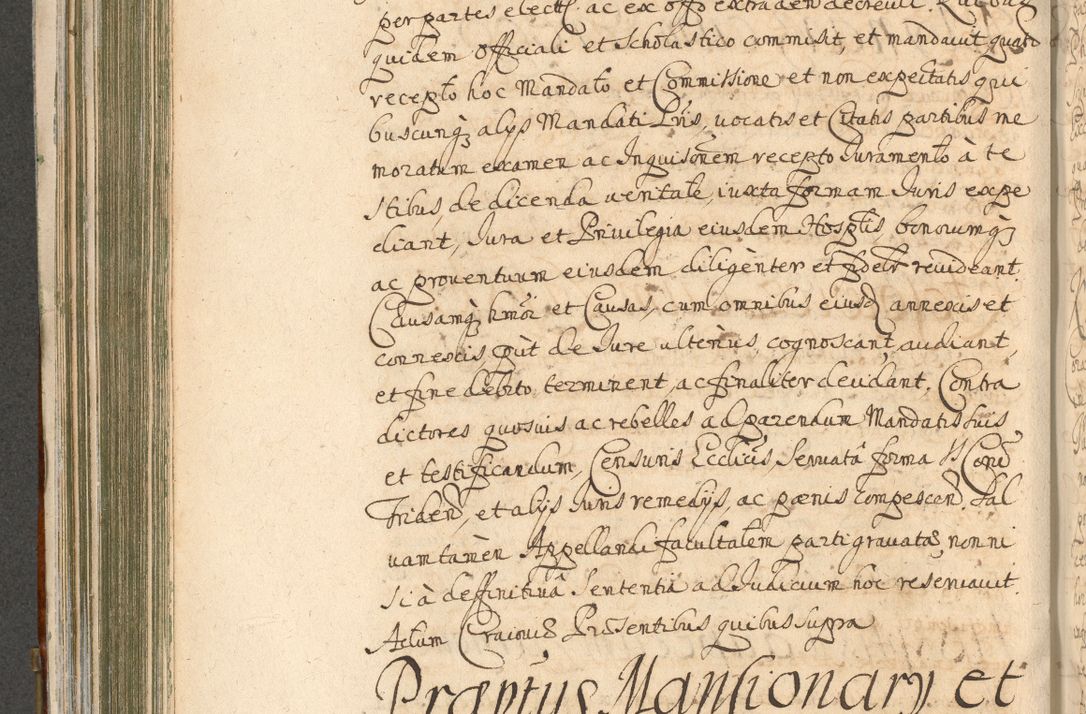 per partes elect, ac ex offo extraden decrevit. Qui
quidem officiali et Scholastico commisit, et mandavit, quatō
recepto hoc Mandato et Commissione et non expectatis qui
buscunq alijs Mandati Lris, vocatis et Citatis partibus me
moratum examen ac Inquisonem recepto Iuramento à te
stibus, de dicenda veritate, iuxta formam Iuris expe
diant, Iura et Privilegia eiusdem Hosptlis, bonorumq
ac proventuum eiusdem diligenter et fidelr revideant.
Causamq hmoi et Causas, cum omnibus eiusd annexis et
connexis, put de Iure ulterius, cognoscant, audiant,
et fine debito terminent, ac finaliter decidant. Contra
dictores quosvis ac rebelles ad parendum Mandatis suis,
et testificandum, Censuris Ecclicis, Servatâ forma SS Conc
Triden, et alijs Iuris remedijs, ac pœnis compescen. Sal
vam tamèn Appellandi facultatem parti gravatæ, non ni
si à deffinitivâ Sententia ad Iudicium hoc reservavit.
Actum Cracoviæ Præsentibus quibus supra
Præptus Mansionary et